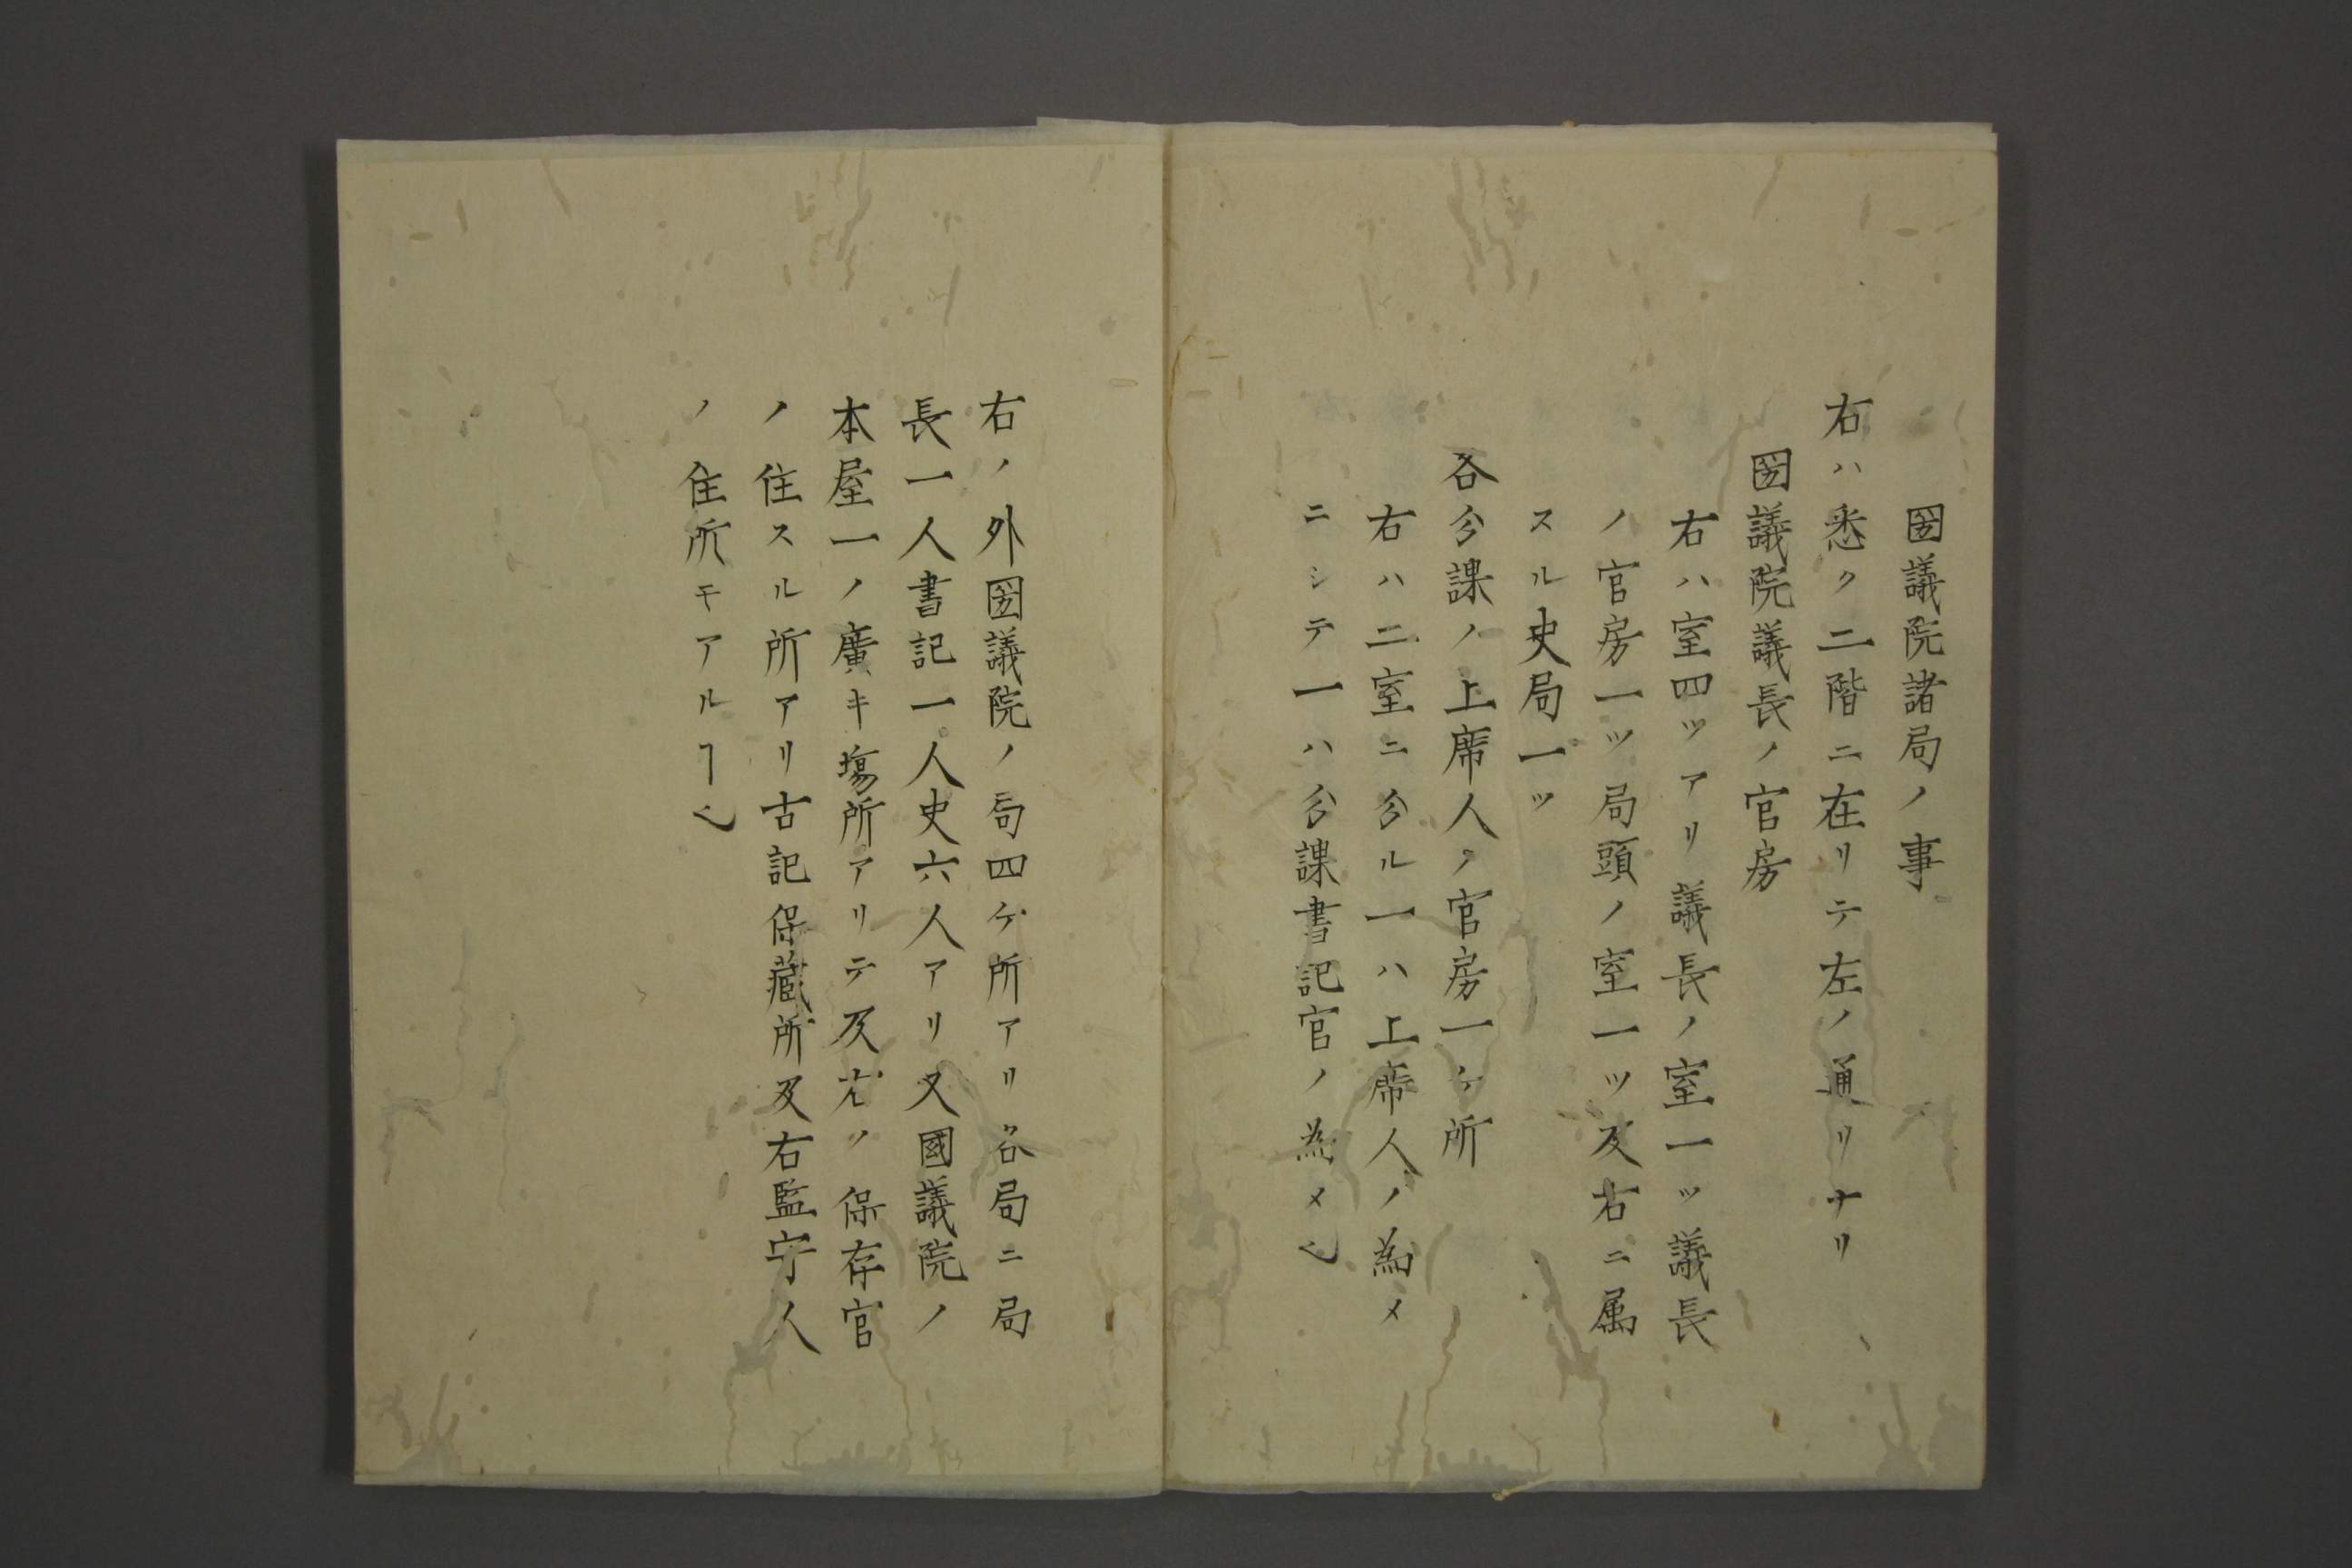 国議院諸局ノ事
右ハ悉ク二階ニ在リテ左ノ通リナリ
国議院議長ノ官房
右ハ室四ツアリ議長ノ室一ツ議長
ノ官房一ツ局頭ノ室一ツ及右ニ属
スル史局一ツ
各分課ノ上席人ノ官房一ケ所
右ハ二室ニ分ル一ハ上席人ノ為メ
ニシテ一ハ分課書記官ノ為メ乀
右ノ外国議院ノ局四ケ所アリ各局ニ局
長一人書記一人史六人アリ又國議院ノ
本屋一ノ廣キ塲所アリテ及尤ノ保存官
ノ住スル所アリ古記保蔵所及右監守人
ノ住所モアルヿ乀